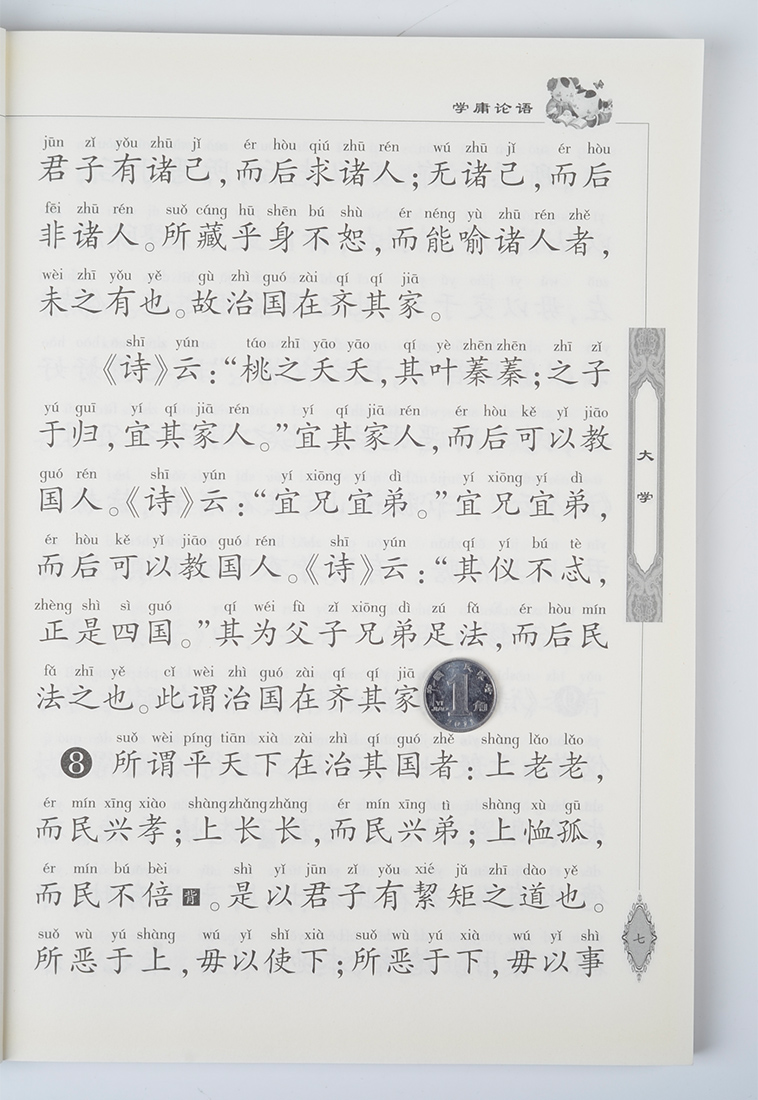 学庸论语
jūn zǐ yǒu zhū jǐ ér hòu qiú zhū rén wú zhū jǐ ér hòu
君子有诸己,而后求诸人;无诸己,而后
fēi zhū rén suǒ cáng hū shēn bú shù ér néng yù zhū rén zhě
非诸人。所藏乎身不恕,而能喻诸人者,
wèi zhī yǒu yě gù zhì guó zài qí qí jiā
未之有也。故治国在齐其家。
shī yún táo zhī yāo yāo qí yè zhēn zhēn zhī zǐ
《诗》云:“桃之夭夭,其叶蓁蓁;之子
yú guī yí qí jiā rén yí qí jiā rén ér hòu kě yǐ jiāo
于归,宜其家人。”宜其家人,而后可以教
guó rén shī yún yí xiōng yí dì yí xiōng yí dì
国人。《诗》云:“宜兄宜弟。”宜兄宜弟,
ér hòu kě yǐ jiāo guó rén shī yún qí yí bú tè
而后可以教国人。《诗》云:“其仪不忒,
zhèng shì sì guó qí wéi fù zǐ xiōng dì zú fǎ ér hòu mín
正是四国。”其为父子兄弟足法,而后民
fǎ zhī yě cǐ wèi zhì guó zài qí qí jiā
法之也。此谓治国在齐其家
suǒ wèi píng tiān xià zài zhì qí guó zhě shàng lǎo lǎo
8 所谓平天下在治其国者:上老老,
ér mín xīng xiào shàng zhǎng zhǎng ér mín xīng tì shàng xù gū
而民兴孝;上长长,而民兴弟;上恤孤,
ér mín bú bèi shì yǐ jūn zǐ yǒu xié jǔ zhī dào yě
而民不倍背。是以君子有絜矩之道也。
suǒ wù yú shàng wú yǐ shǐ xià suǒ wù yú xià wú yǐ shì
所恶于上,毋以使下;所恶于下,毋以事
大学
七
1
YI JIAO
角